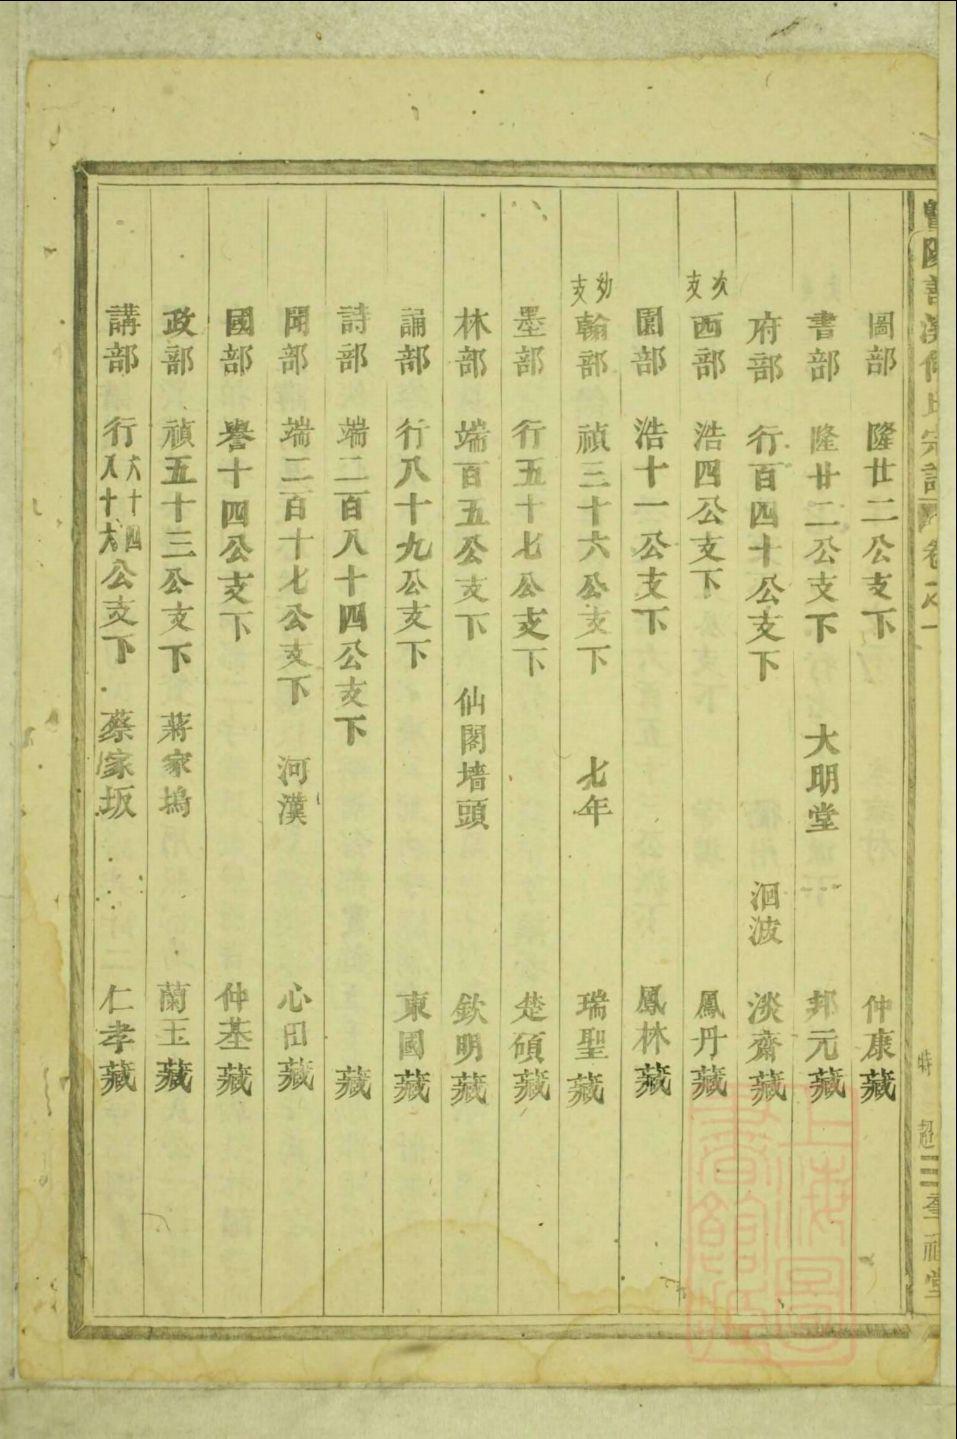 暨陽善溪何氏宗譜 卷之一
圖部 隆廿二公支下 仲康藏
書部 隆廿二公支下 大明堂 邦元藏
府部 行百四十公支下 洄波 淡齋藏
次支 西部 浩四公支下 鳳丹藏
園部 浩十一公支下 鳳林藏
幼支 翰部 禎三十六公支下 七年 瑞聖藏
墨部 行五十七公支下 楚碩藏
林部 端百五公支下 仙閣墻頭 欽明藏
誦部 行八十九公支下 東國藏
詩部 端二百八十四公支下 藏
聞部 端二百十七公支下 河漢 心田藏
國部 譽十四公支下 仲基藏
政部 禎五十三公支下 蔣家塢 蘭玉藏
講部 行六十四八十六公支下 蔡家坂 仁孝藏
上海圖書館藏